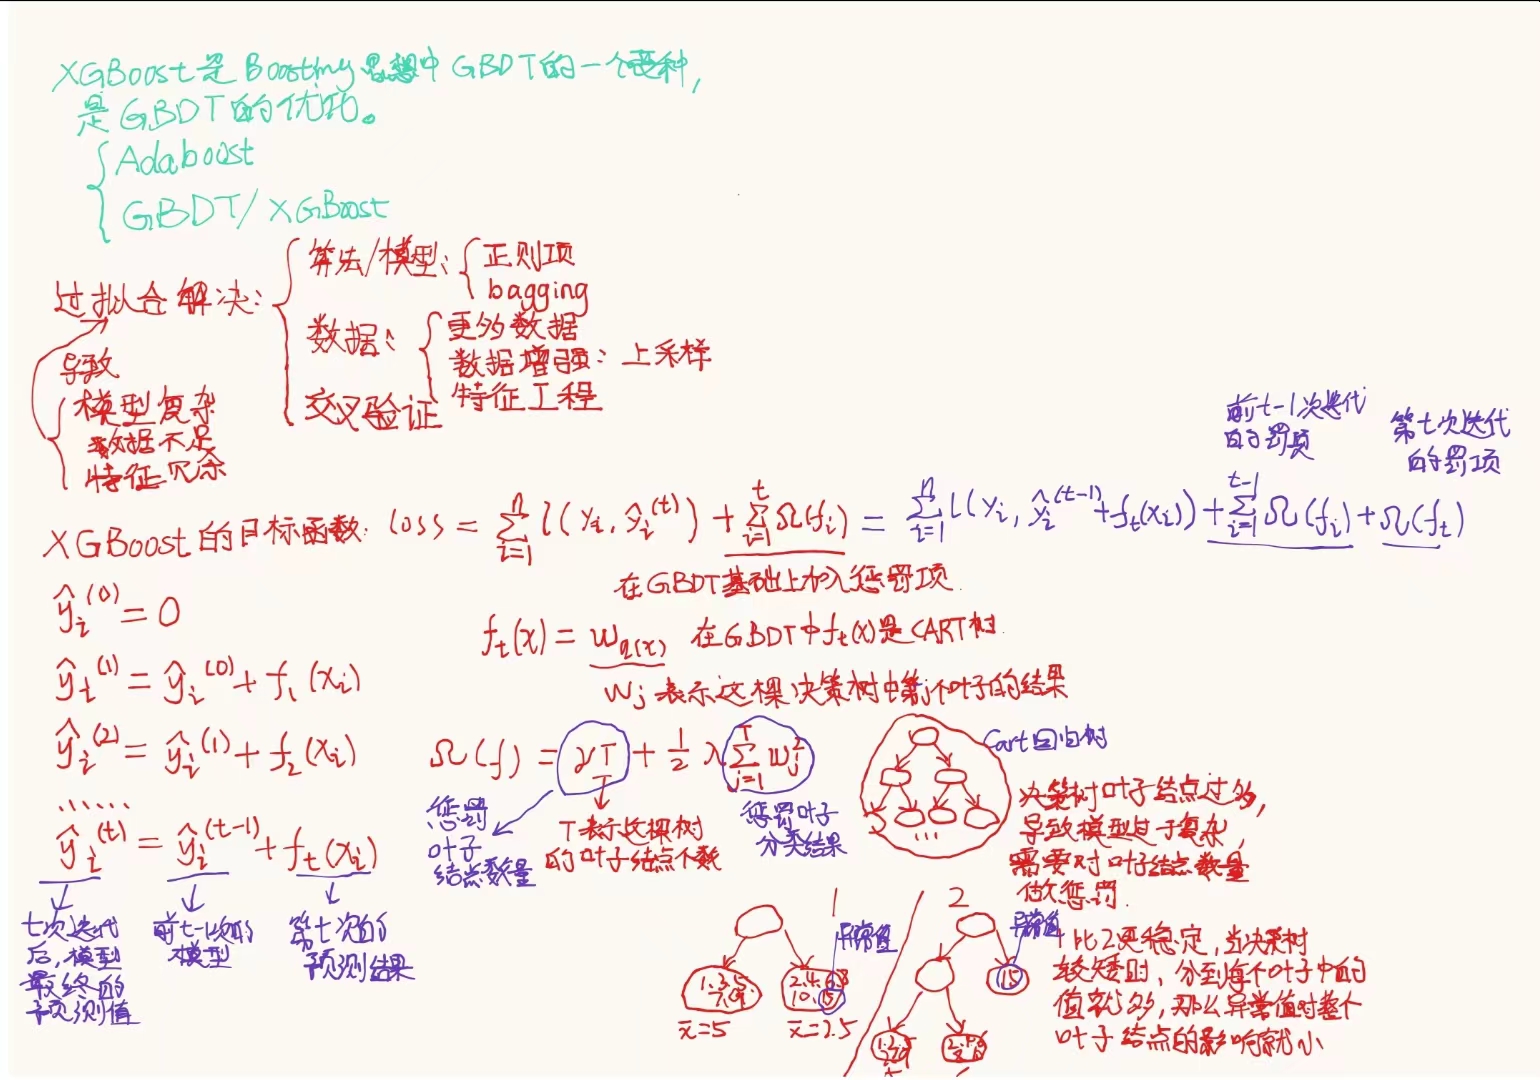 XGBoost是Boosting思想中GBDT的一个变种,
是GBDT的优化。
Adaboost
GBDT/XGBoost
过拟合解决:
算法/模型:
正则项
bagging
数据:
更多数据
数据增强:上采样
特征工程
交叉验证
导致
模型复杂
数据不足
特征冗余
前t-1次迭代
的罚项
第七次迭代
的罚项
XGBoost的目标函数: loss = ∑_{i=1}^{n} l(y_i, ŷ_i^{(t)}) + ∑_{i=1}^{t} Ω(f_i) = ∑_{i=1}^{n} l(y_i, ŷ_i^{(t-1)} + f_t(x_i)) + ∑_{i=1}^{t-1} Ω(f_i) + Ω(f_t)
在GBDT基础上加入惩罚项.
ŷ_i^{(0)} = 0
ŷ_t^{(1)} = ŷ_i^{(0)} + f_1(x_i)
ŷ_i^{(2)} = ŷ_i^{(1)} + f_2(x_i)
......
ŷ_i^{(t)} = ŷ_i^{(t-1)} + f_t(x_i)
七次迭代
后,模型
最终的
预测值
前t-1次的
模型
第七次的
预测结果
f_t(x) = w_{q(x)} 在GBDT中f_t(x)是CART树.
w_j 表示这棵决策树中第j个叶子的结果
Ω(f) = γT + 1/2 λ ∑_{j=1}^{T} w_j^2
惩罚
叶子
结点数量
T表示这棵树
的叶子结点个数
惩罚叶子
分类结果
Cart回归树
...
决策树叶子结点过多,
导致模型过于复杂,
需要对叶子结点数量
做惩罚.
1
异常值
1.3.5.
7.9.
x̄=5
2.4.6.8
10.15
x̄=7.5
2
异常值
15
1比2更稳定,当决策树
较矮时,分到每个叶子中的
值就多,那么异常值对整个
叶子结点的影响就小